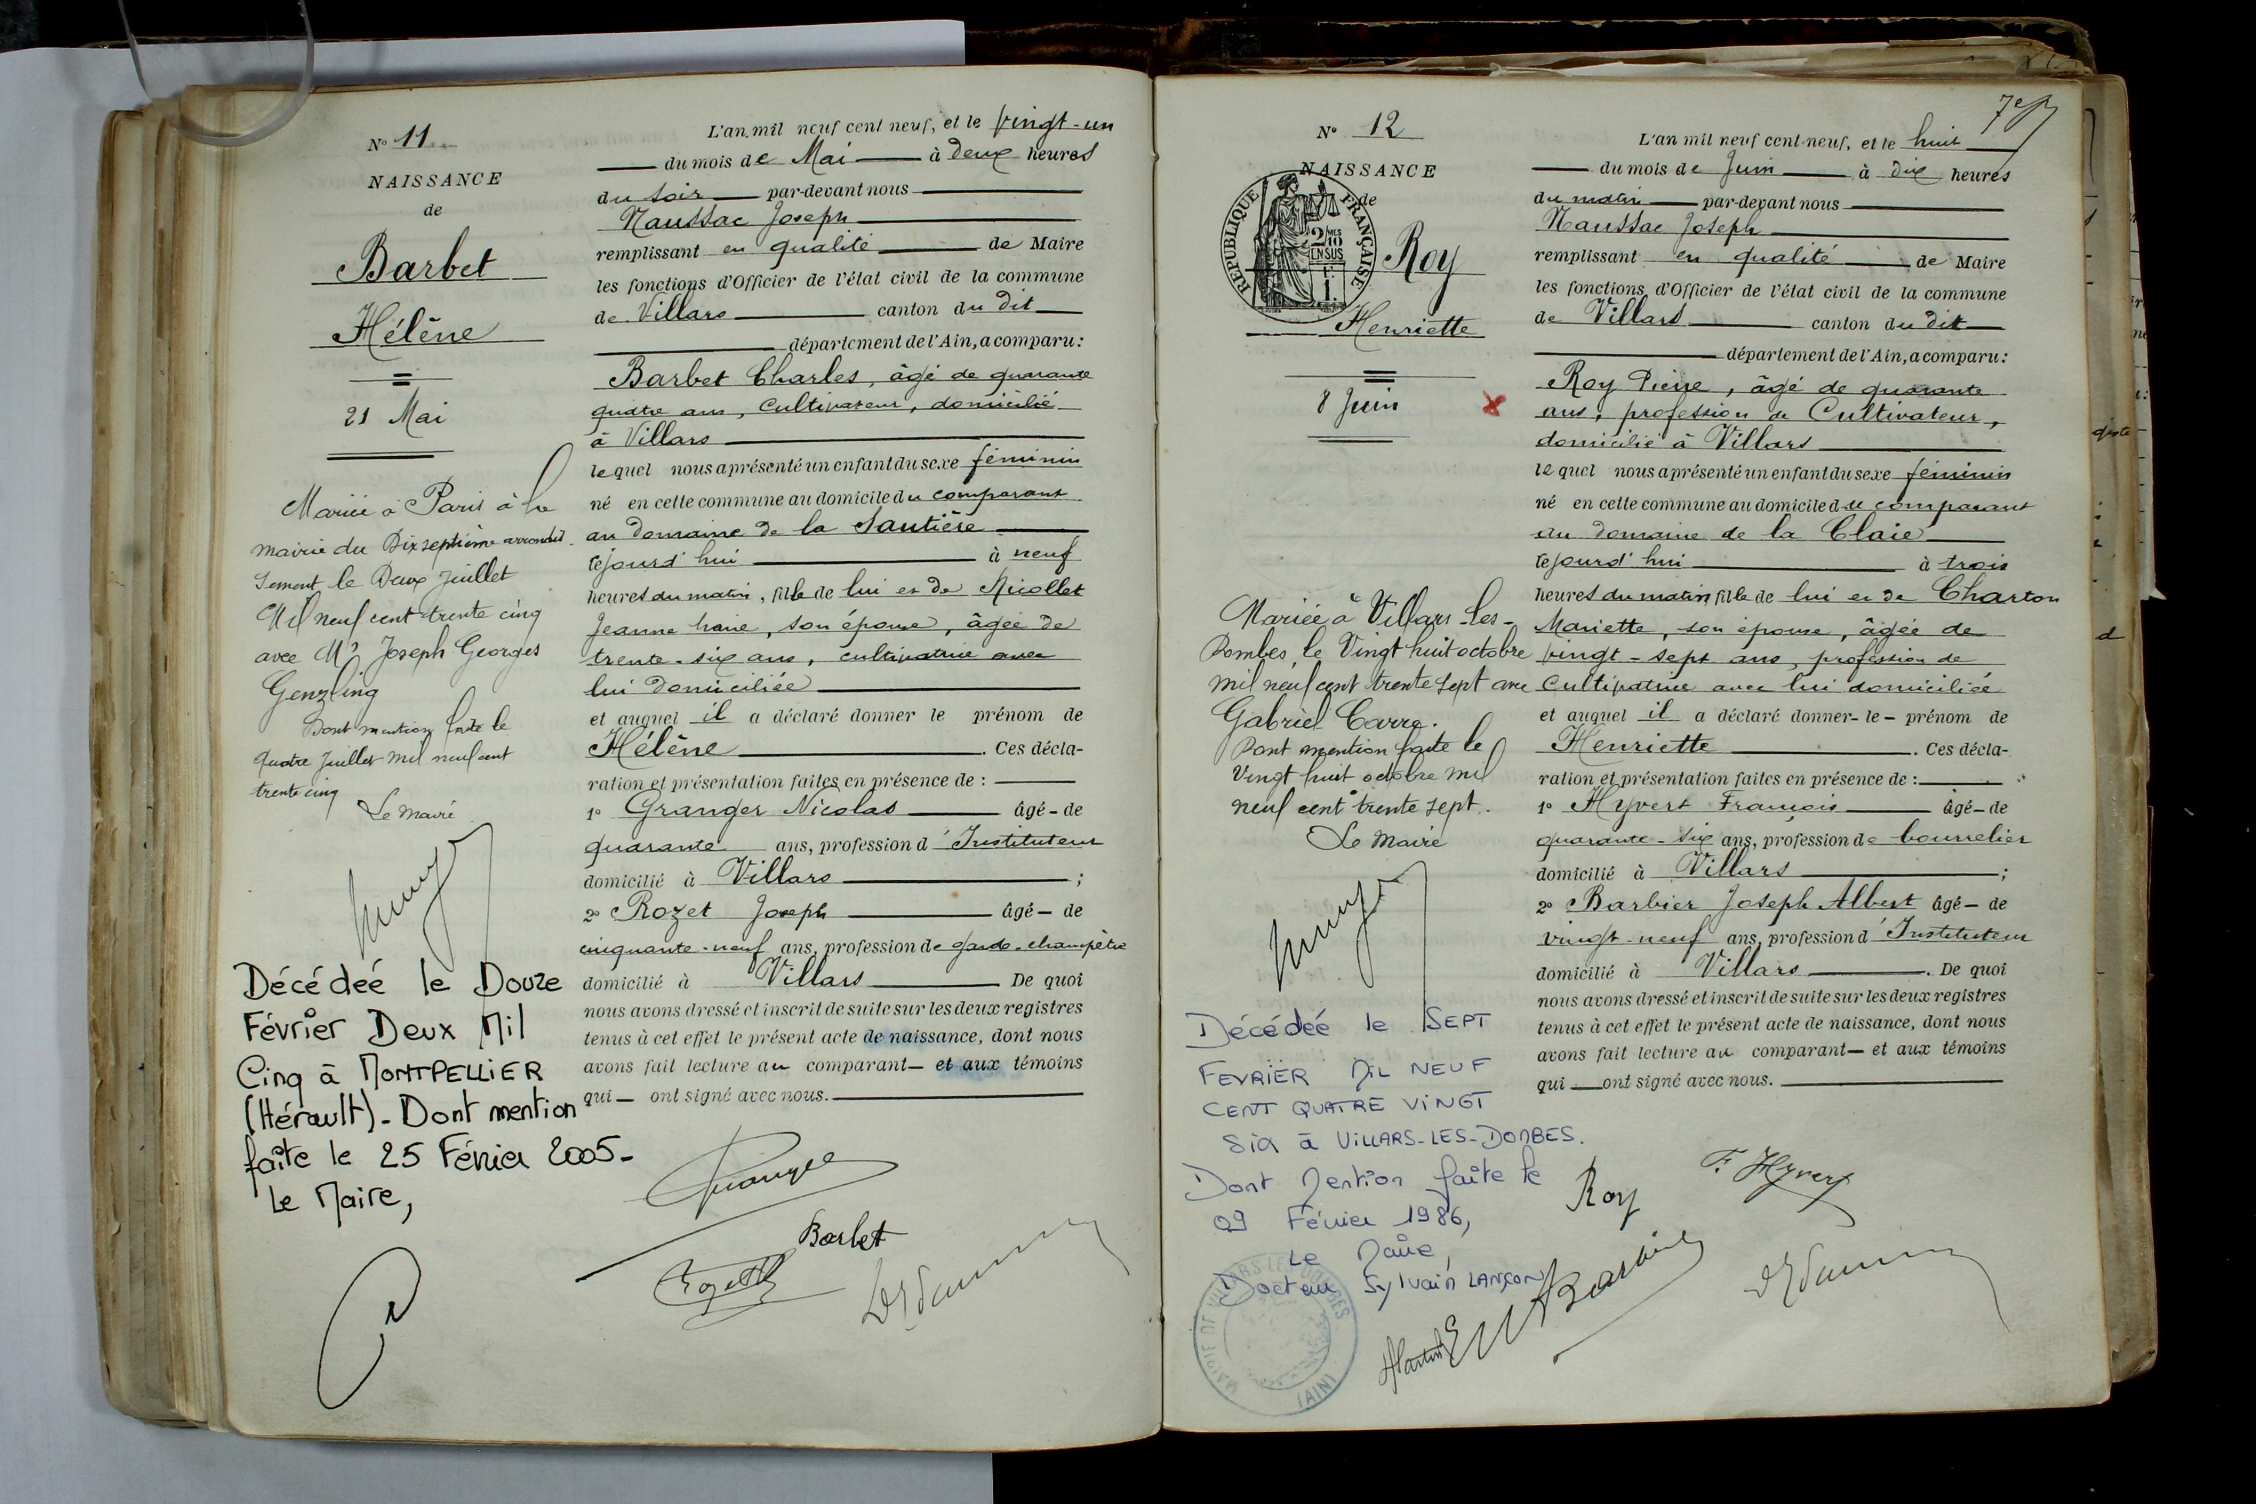 N° 11
NAISSANCE
de
Barbet
Hélène
21 Mai
Mariée à Paris à la
mairie du Dixseptième arrondis-
sement le Deux Juillet
Mil neuf cent trente cinq
avec Mr Joseph Georges
Genzling
Dont mention faite le
quatre Juillet mil neuf cent
trente cinq
Le Maire
Décédeé le Douze
Février Deux Mil
Cinq à MONTPELLIER
(Hérault)_ Dont mention
faite le 25 Février 2005_
Le Maire,
L'an mil neuf cent neuf, et le vingt-un
du mois de Mai à deux heures
du soir par-devant nous
Naussac Joseph
remplissant en qualité de Maire
les fonctions d'Officier de l'état civil de la commune
de Villars canton du dit
département de l'Ain, a comparu:
Barbet Charles, âgé de quarante
quatre ans, cultivateur, domicilié
à Villars
lequel nous a présenté un enfant du sexe féminin
né en cette commune au domicile du comparant
au domaine de la Sautière
cejourd'hui à neuf
heures du matin, fille de lui et de Nicollet
Jeanne Marie, son épouse, âgée de
trente-six ans, cultivatrice avec
lui domiciliée
et auquel il a déclaré donner le prénom de
Hélène. Ces décla-
ration et présentation faites en présence de:
1° Granger Nicolas âgé-de
quarante ans, profession d'Instituteur
domicilié à Villars;
2° Rozet Joseph âgé-de
cinquante-neuf ans, profession de garde-champêtre
domicilié à Villars De quoi
nous avons dressé et inscrit de suite sur les deux registres
tenus à cet effet le présent acte de naissance, dont nous
avons fait lecture au comparant— et aux témoins
qui — ont signé avec nous.
Granger
Barbet
Rozet
N° 12
NAISSANCE
de
REPUBLIQUE FRANÇAISE
2/10 MES
EN SUS
Roy
Henriette
8 Juin
Mariée à Villars-les-
Dombes, le Vingt huit octobre
mil neuf cent trente sept avec
Gabriel Carre.
Dont mention faite le
Vingt huit octobre mil
neuf cent trente sept.
Le Maire
Décédeé le SEPT
FEVRIER MIL NEUF
CENT QUATRE VINGT
SIX à VILLARS-LES-DOMBES.
Dont Mention faite le
09 Février 1986,
Le Maire,
Docteur Sylvain LANÇON
MAIRIE DE VILLARS LES DOMBES
(AIN)
7e
L'an mil neuf cent neuf, et le huit
du mois de Juin à dix heures
du matin par-devant nous
Naussac Joseph
remplissant en qualité de Maire
les fonctions d'Officier de l'état civil de la commune
de Villars canton du dit
département de l'Ain, a comparu:
Roy Pierre, âgé de quarante
ans, profession de Cultivateur,
domicilié à Villars
lequel nous a présenté un enfant du sexe féminin
né en cette commune au domicile du comparant
au domaine de la Claie
cejourd'hui à trois
heures du matin fille de lui et de Charton
Mariette, son épouse, âgée de
vingt-sept ans, profession de
Cultivatrice avec lui domiciliée
et auquel il a déclaré donner-le-prénom de
Henriette. Ces décla-
ration et présentation faites en présence de:
1° Hyvert François âgé-de
quarante-six ans, profession de bourrelier
domicilié à Villars;
2° Barbier Joseph Albert âgé-de
vingt-neuf ans, profession d'Instituteur
domicilié à Villars. De quoi
nous avons dressé et inscrit de suite sur les deux registres
tenus à cet effet le présent acte de naissance, dont nous
avons fait lecture au comparant— et aux témoins
qui — ont signé avec nous.
Roy
F. Hyvert